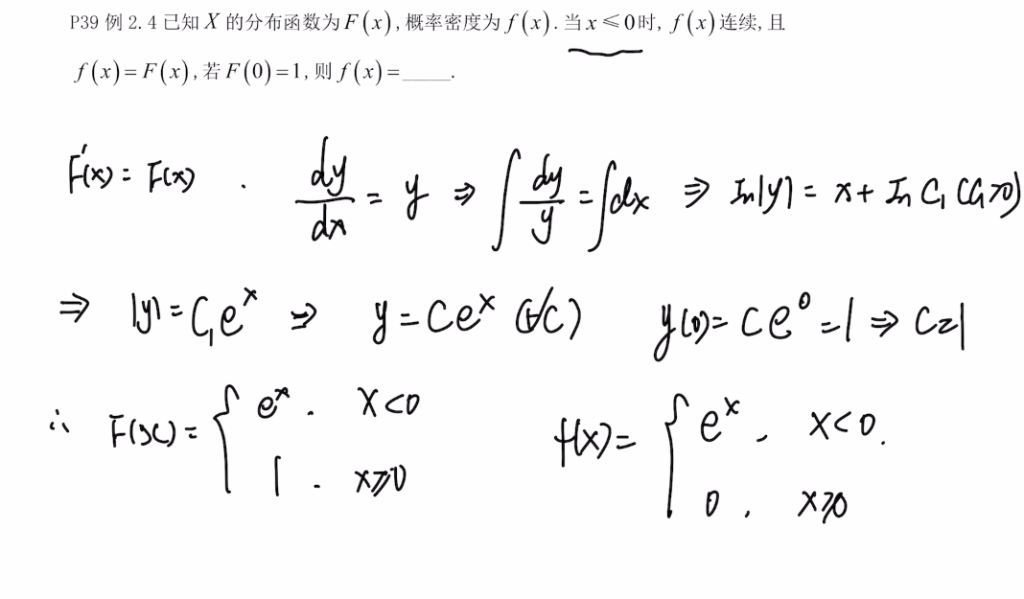 P39 例 2.4 已知 X 的分布函数为 F(x), 概率密度为 f(x). 当 x ≤ 0 时, f(x) 连续, 且
f(x) = F(x), 若 F(0) = 1, 则 f(x) = ____.
F'(x) = F(x) . dy/dx = y ⇒ ∫ dy/y = ∫ dx ⇒ ln|y| = x + ln C₁ (C₁>0)
⇒ |y| = C₁eˣ ⇒ y = Ceˣ (∀C) y(0) = Ce⁰ = 1 ⇒ C=1
∴ F(x) = { eˣ . x<0 f(x) = { eˣ , x<0.
1 . x≥0 0 , x≥0